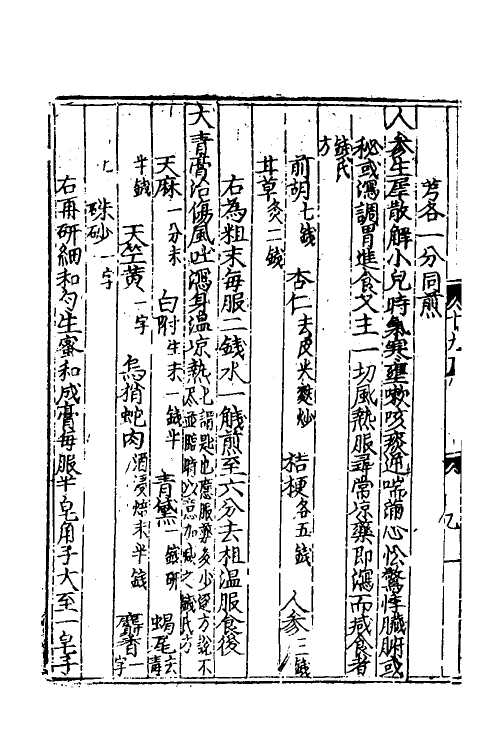 芎各一分同煎
人参生犀散解小兒時氣寒壅嗽咳痰逆喘滿心忪驚悸臟腑或
秘或瀉調胃進食又主一切風熱服尋常凉藥即瀉而减食者
錢氏方
前胡七錢 杏仁去皮尖麩炒 桔梗各五錢 人参三錢
甘草炙二錢
右為粗末每服二錢水一錢煎至六分去柤温服食後
大青膏治傷風吐瀉身温凉熱
天麻一分末 白附生末一錢半 青黛一錢研 蝎尾去毒
半錢 天竺黄一字 烏梢蛇肉酒浸焙末半錢 麝香一字
硃砂一字
右再研細和勻生蜜和成膏每服半皂角子大至一皂子